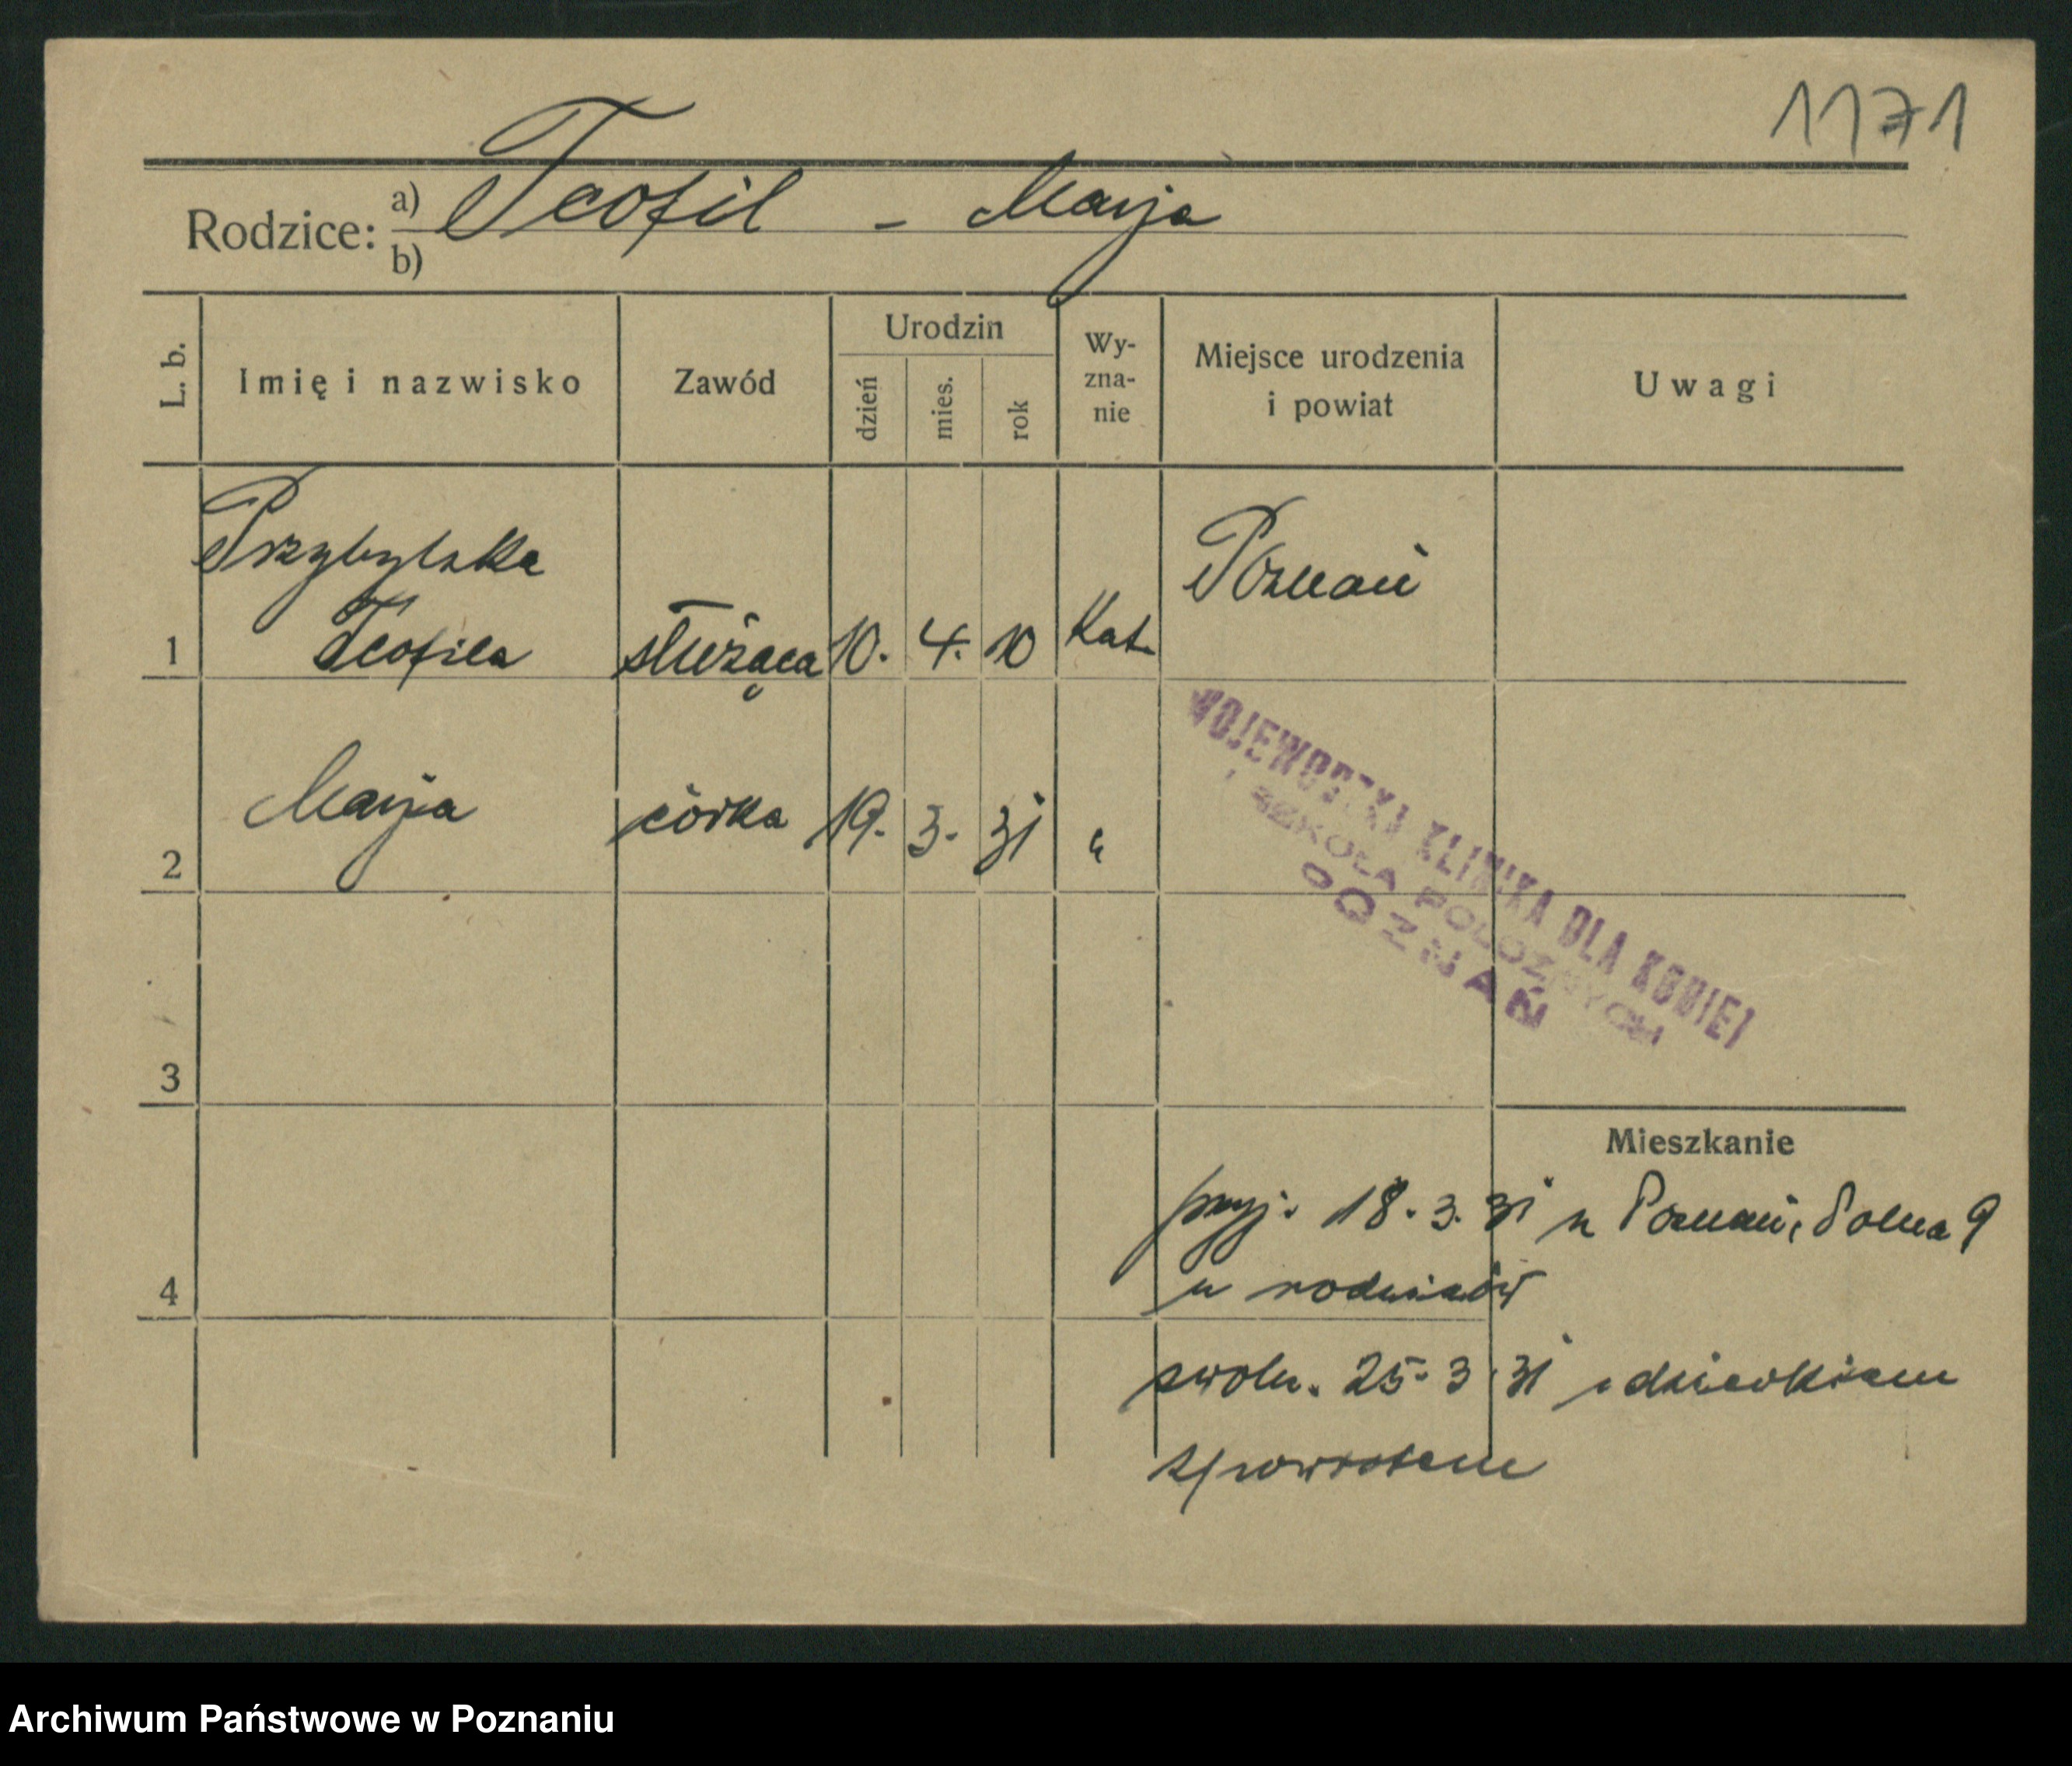 1171
Rodzice: a) Teofil - Marja
b)
L. b. Imię i nazwisko Zawód Urodzin dzień mies. rok Wy-zna-nie Miejsce urodzenia i powiat Uwagi
Przybylska
1 Teofila służąca 10. 4. 10 Kat. Poznań
2 Marja córka 19. 3. 31 "
WOJEWÓDZKA KLINIKA DLA KOBIET
I SZKOŁA POŁOŻNYCH
POZNAŃ
3
Mieszkanie
przyj. 18.3.31 z Poznań, Polna 9
4 u rodziców
zwoln. 25.3.31 z dzieckiem
z powrotem
Archiwum Państwowe w Poznaniu